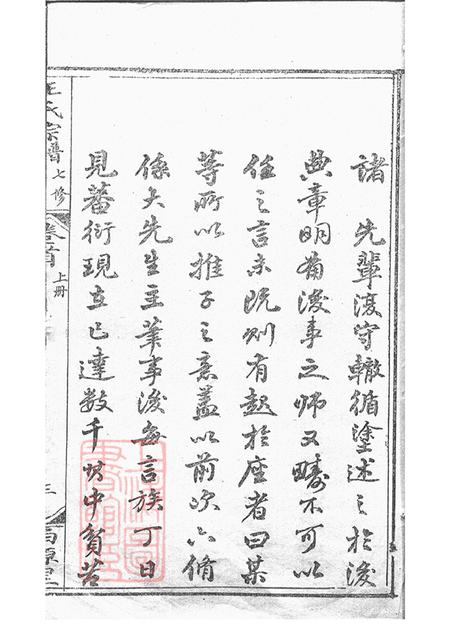 諸 先輩復守轍循塗述之於後
典章明備後事之師又疇不可以
任之言未既則有起於座者曰某
等所以推子之意蓋以前次六脩
係大先生主筆事後每言族丁日
見蕃衍現在已達数千坊中貧苦
王氏宗譜 七修
卷首 上册
三